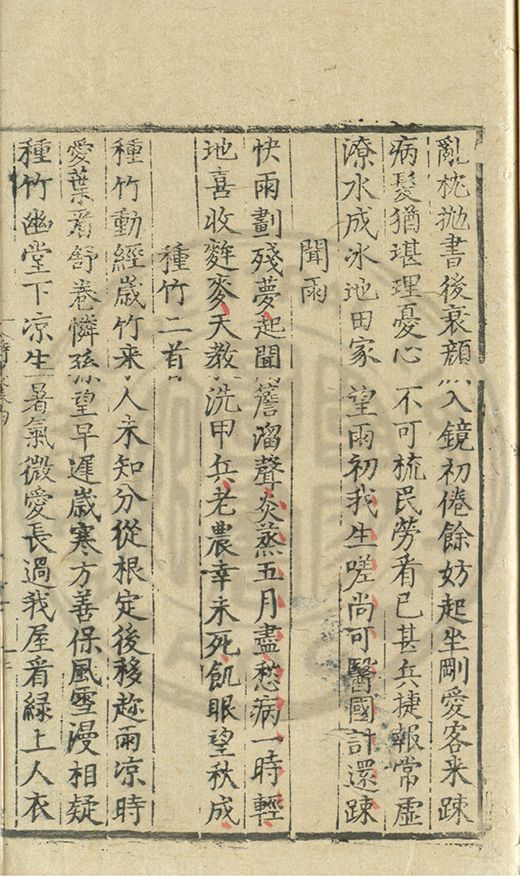 亂枕抛書後衰顔入鏡初倦餘妨起坐剛愛客来踈
病髮猶堪理憂心不可梳民勞看已甚兵捷報常虛
潦水成氷地田家望雨初我生嗟尚可醫國計還踈
聞雨
快雨劃殘夢起聞簷溜聲炎蒸五月盡愁病一時輕
地喜收麰麥天教洗甲兵老農幸未死飢眼望秋成
種竹二首
種竹動經歲竹来人未知分從根定後移趂雨凉時
愛葉看舒卷憐孫望早遲歲寒方善保風雪漫相疑
種竹幽堂下凉生暑氣微愛長過我屋看緑上人衣